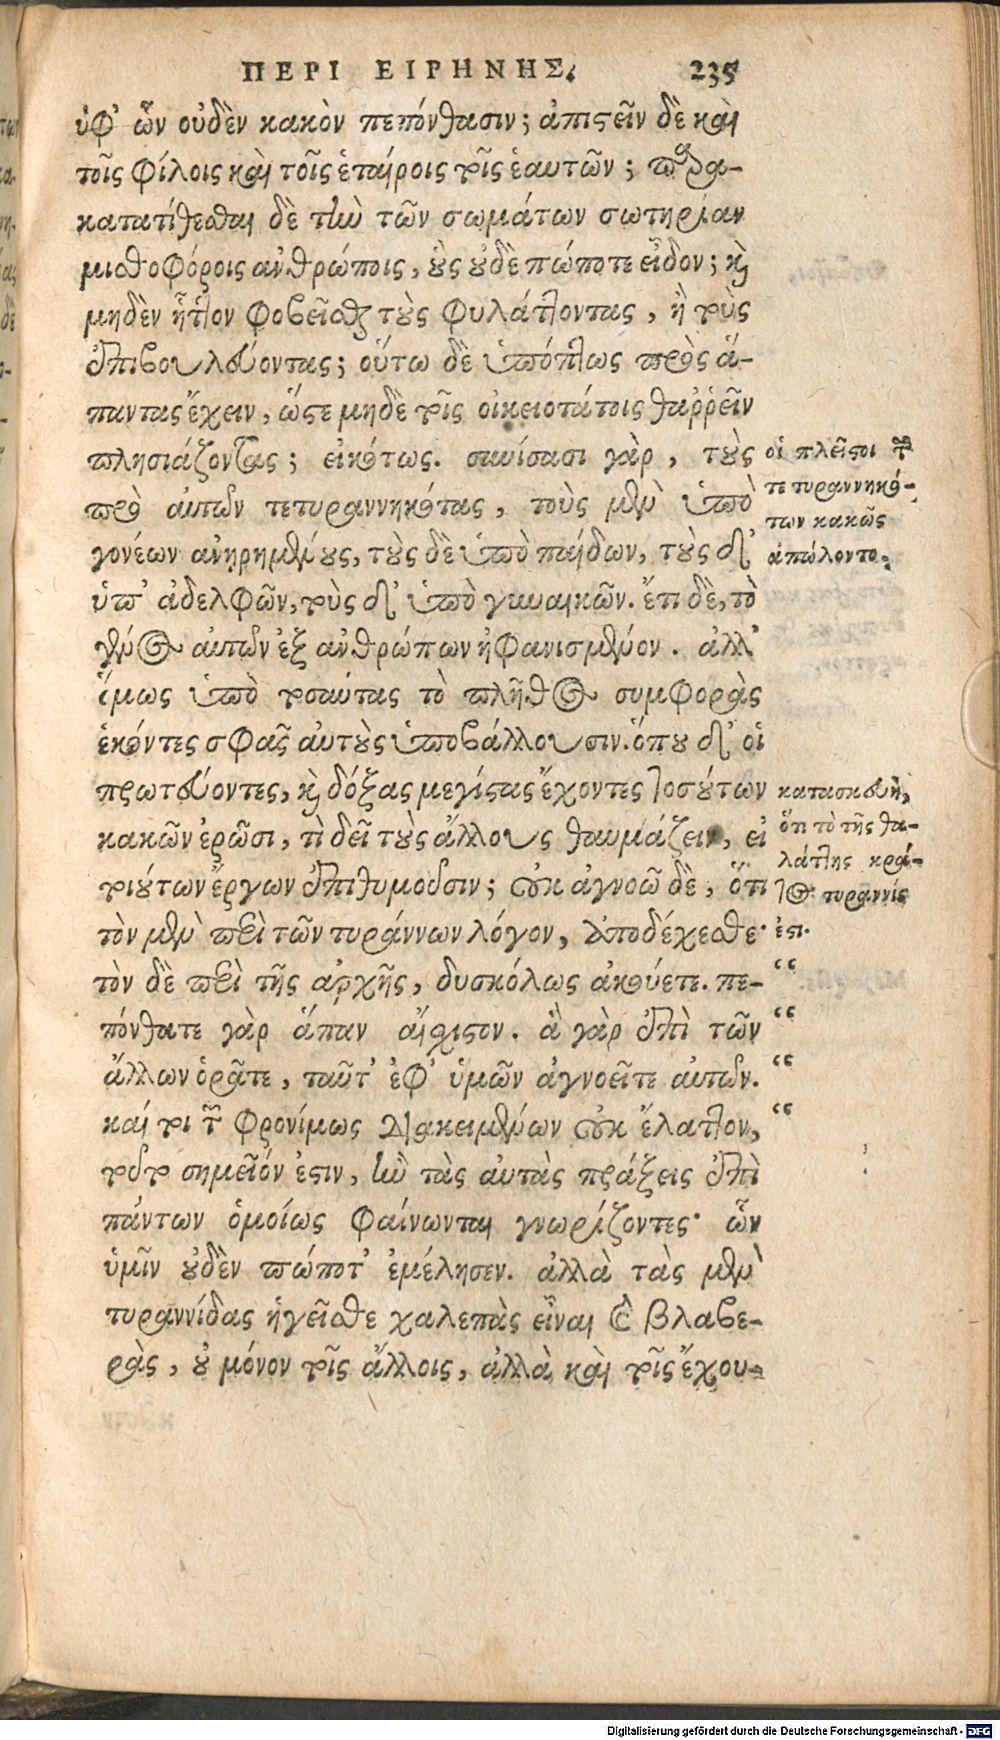 ΠΕΡΙ ΕΙΡΗΝΗΣ. 235
ὑφ' ὧν οὐδὲν κακὸν πεπόνθασιν; ἀπιστεῖν δὲ καὶ
τοῖς φίλοις καὶ τοῖς ἑταίροις τοῖς ἑαυτῶν; παρα-
κατατίθεσθαι δὲ τὴν τῶν σωμάτων σωτηρίαν
μισθοφόροις ἀνθρώποις, οὓς οὐδὲ πώποτε εἶδον; καὶ
μηδὲν ἧττον φοβεῖσθαι τοὺς φυλάττοντας, ἢ τοὺς
ἐπιβουλεύοντας; οὕτω δὲ ὑπόπτως πρὸς ἅ-
παντας ἔχειν, ὥστε μηδὲ τοῖς οἰκειοτάτοις θαῤῥεῖν
πλησιάζοντας; εἰκότως. συνίσασι γὰρ, τοὺς
πρὸ αὐτῶν τετυραννηκότας, τοὺς μὲν ὑπὸ
γονέων ἀνῃρημένους, τοὺς δὲ ὑπὸ παίδων, τοὺς δ'
ὑπ' ἀδελφῶν, τοὺς δ' ὑπὸ γυναικῶν. ἔτι δὲ, τὸ
γένος αὐτῶν ἐξ ἀνθρώπων ἠφανισμένον. ἀλλ'
ὅμως ὑπὸ τοσαύτας τὸ πλῆθος συμφορὰς
ἑκόντες σφᾶς αὐτοὺς ὑποβάλλουσιν. ὅπου δ' οἱ
πρωτεύοντες, καὶ δόξας μεγίστας ἔχοντες τοσούτων
κακῶν ἐρῶσι, τὶ δεῖ τοὺς ἄλλους θαυμάζειν, εἰ
τοιούτων ἔργων ἐπιθυμοῦσιν; οὐκ ἀγνοῶ δὲ, ὅτι
τὸν μὲν περὶ τῶν τυράννων λόγον, ἀποδέχεσθε·
τὸν δὲ περὶ τῆς ἀρχῆς, δυσκόλως ἀκούετε. πε-
πόνθατε γὰρ ἅπαν αἴσχιστον. ἃ γὰρ ἐπὶ τῶν
ἄλλων ὁρᾶτε, ταῦτ' ἐφ' ὑμῶν ἀγνοεῖτε αὐτῶν.
καί τοι τῶν φρονίμως διακειμένων οὐκ ἔλαττον,
τοῦτο σημεῖόν ἐστιν, ἢν τὰς αὐτὰς πράξεις ἐπὶ
πάντων ὁμοίως φαίνωνται γνωρίζοντες· ὧν
ὑμῖν οὐδὲν πώποτ' ἐμέλησεν. ἀλλὰ τὰς μὲν
τυραννίδας ἡγεῖσθε χαλεπὰς εἶναι καὶ βλαβε-
ρὰς, οὐ μόνον τοῖς ἄλλοις, ἀλλὰ καὶ τοῖς ἔχου-
οἱ πλεῖστοι τῶν
τετυραννηκό-
των κακῶς
ἀπώλοντο.
κατασκευὴ,
ὅτι τὸ τῆς θα-
λάττης κρά-
τος τυραννίς
ἐστι.
“
“
“
“
Digitalisierung gefördert durch die Deutsche Forschungsgemeinschaft - DFG